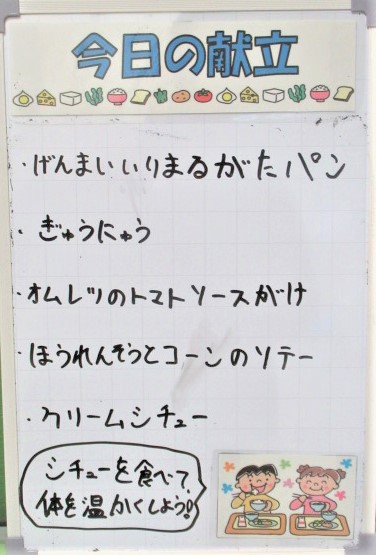 今日の献立
・げんまいいりまるがたパン
・ぎゅうにゅう
・オムレツのトマトソースがけ
・ほうれんそうとコーンのソテー
・クリームシチュー
シチューを食べて、
体を温かくしよう!